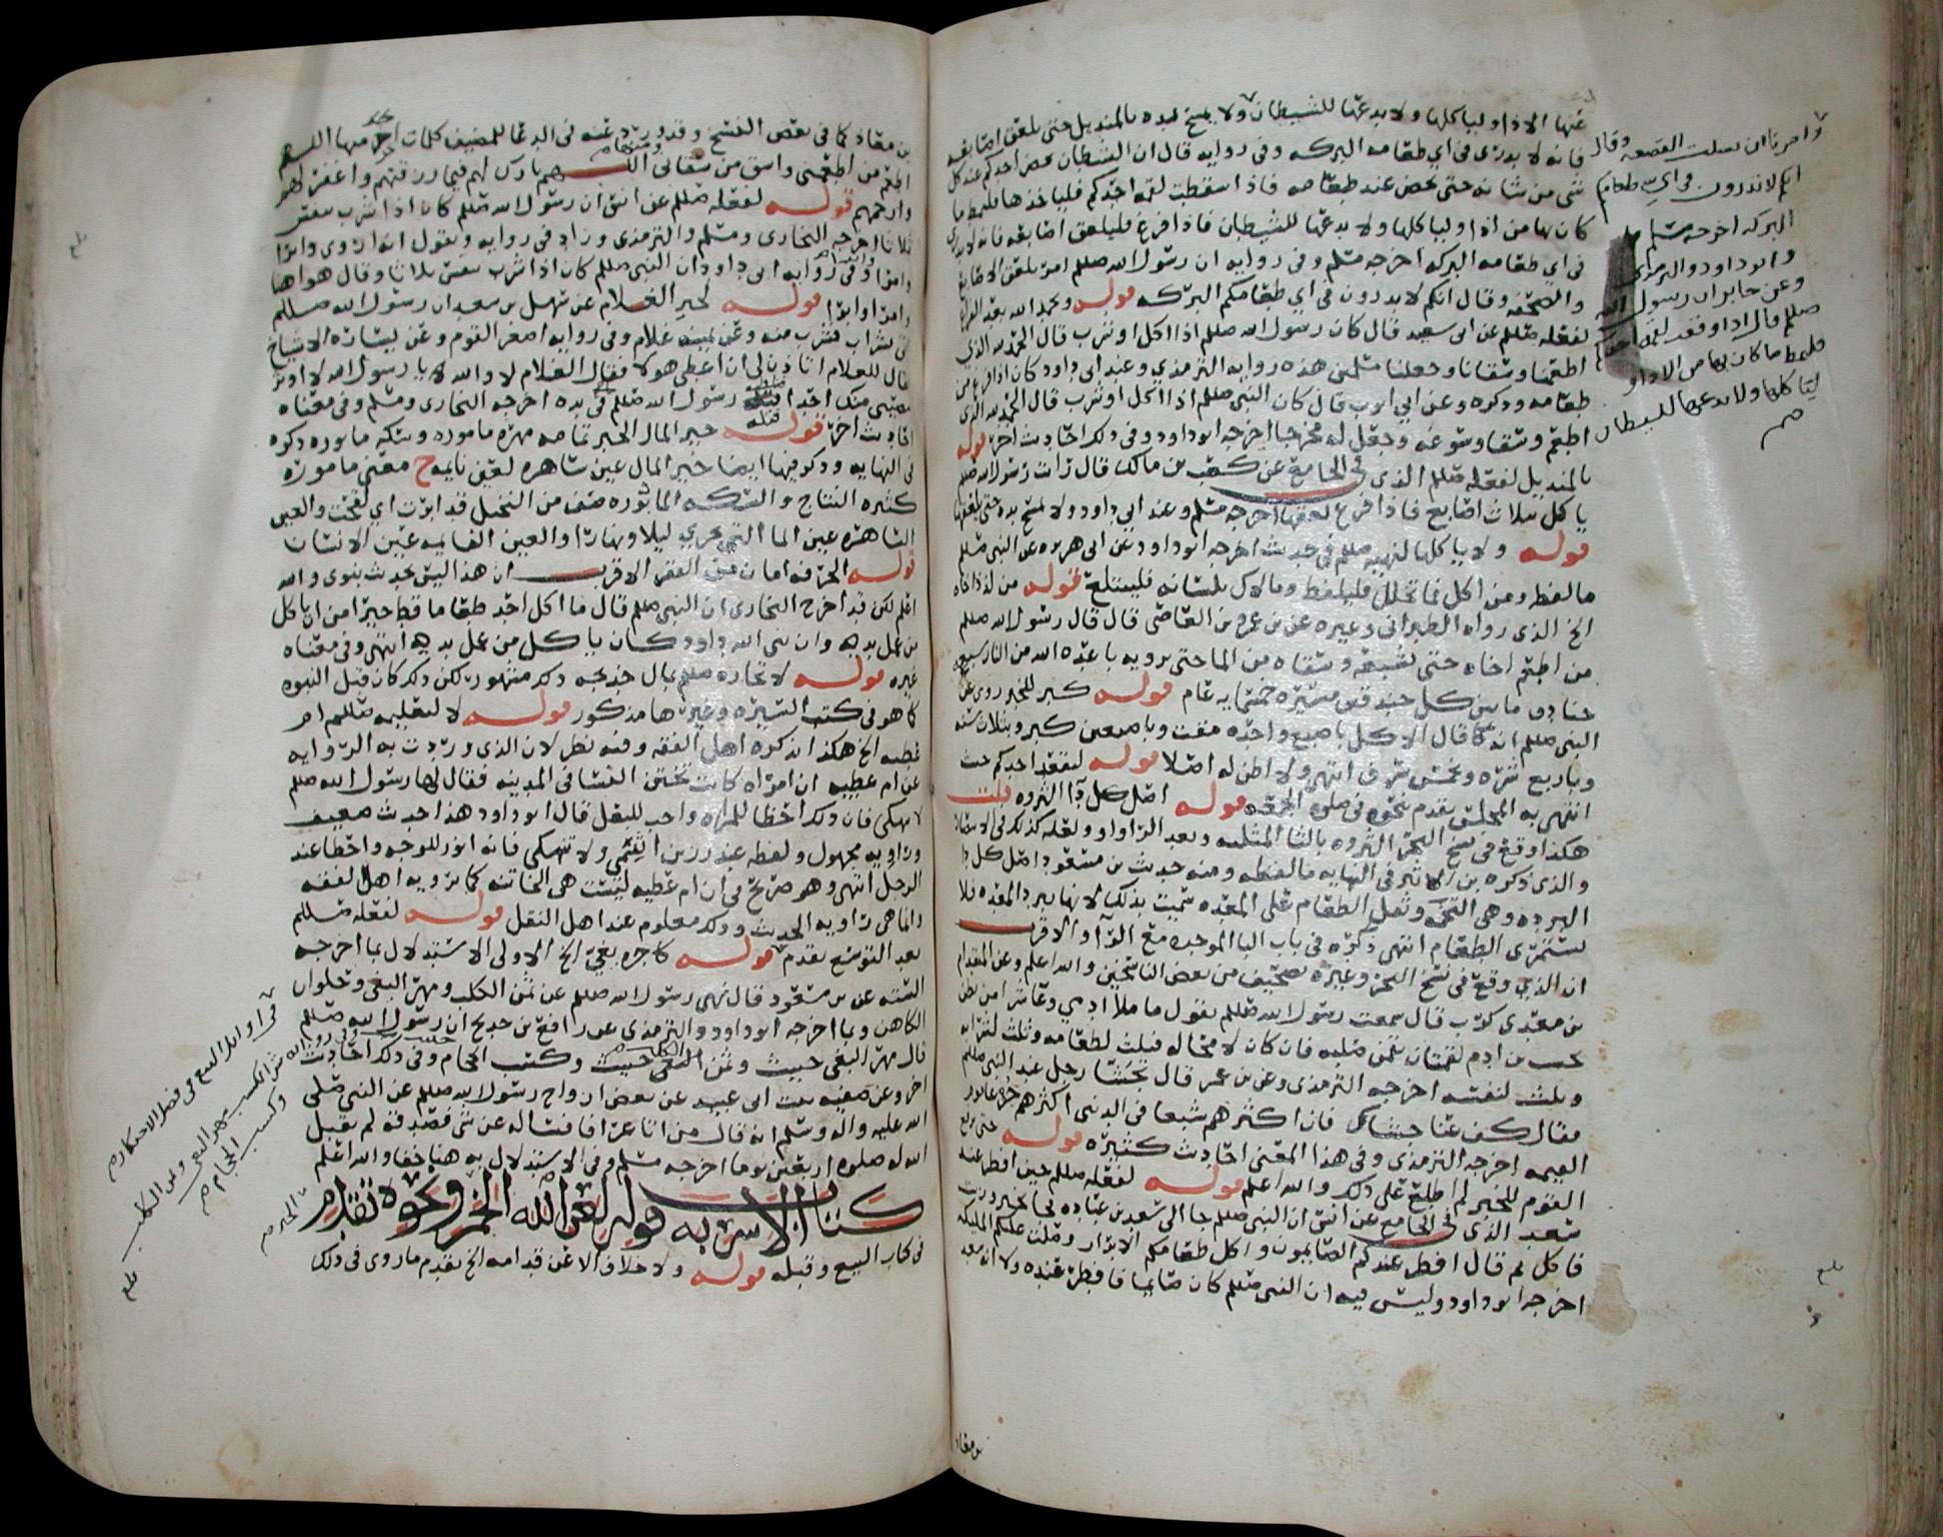 عنها الاذا وليا كلها ولا يدعها للشيطان ولا يمسح يده بالمنديل حتى يلعق اصابعه
فانه لا يدرى في اي طعامه البركه وفي روايه قال ان الشيطان يحضر احدكم عند كل
شي من شانه حتى يحضر عند طعامه فاذا سقطت لقمه احدكم فلياخذها فليمط ما
كان بها من اذا وليا كلها ولا يدعها للشيطان فاذا فرغ فليلعق اصابعه فانه لا يدري
في اي طعامه البركه اخرجه مسلم وفي روايه ان رسول الله صللم امر بلعق الاصابع
والصحفه وقال انكم لا تدرون في اي طعامكم البركه قوله ويحمد الله بعد الفراغ
لفعله صللم عن ابي سعيد قال كان رسول الله صللم اذا اكل او شرب قال الحمد لله الذي
اطعمنا وسقانا وجعلنا مسلمين هذه روايه الترمذي وعند ابي داود كان اذا فرغ من
طعامه وذكره وعن ابي ايوب قال كان النبي صللم اذا اكل او شرب قال الحمد لله الذي
اطعم وسقا وسوغه وجعل له مخرجا اخرجه ابو داود وفي ذلك احاديث اخر قوله
بالمنديل لفعله صللم الذي في الجامع عن كعب بن مالك قال رايت رسول الله صللم
ياكل بثلاث اصابع فاذا فرغ لعقها اخرجه مسلم وعند ابي داود ولا يمسح يده حتى يلعقها
قوله ولا ياكلها لنهيه صللم في حديث اخرجه ابو داود عن ابي هريره عن النبي صللم
ما لفظه ومن اكل فما تخلل فليلفظ وما لاك بلسانه فليبتلع قوله من لذذ اخاه
الخ الذي رواه الطبراني وغيره عن بن عمرو بن العاصي قال قال رسول الله صللم
من اطعم اخاه حتى يشبعه وسقاه من الما حتى يرويه باعده الله من النار سبع
خنادق ما بين كل خندقين مسيره خمسمايه عام قوله كسر للخبر روى عن
النبي صللم انه قال الاكل باصبع واحده مقت وباصبعين كبر وبثلاث سنه
وباربع شره وبخمس شرف انتهى ولا اظن له اصلا قوله ليقعد احدكم حيث
انتهى به المجلس تقدم نحوه في صلوه الجمعه قوله اصل كل دا الثروه قلت
هكذا وقع في نسخ البحر الثروه بالثا المثلثه وبعد الرا واو ولعله كذلك في الانتصار
والذي ذكره بن الاثير في النهايه ما لفظه ومنه حديث بن مسعود اصل كل دا
البرده وهي التخمه وثقل الطعام على المعده سميت بذلك لانها تبرد المعده فلا
تستمرى الطعام انتهى ذكره في باب البا الموحده مع الرا والاقرب
ان الذي وقع في نسخ البحر وغيره تصحيف من بعض الناسخين والله اعلم وعن المقدام
بن معدي كرب قال سمعت رسول الله صللم يقول ما ملا ادمي وعا شرا من بطن
بحسب بن ادم لقمتان يقمن صلبه فان كان لا محاله فثلث لطعامه وثلث لشرابه
وثلث لنفسه اخرجه الترمذي وعن بن عمر قال تجشا رجل عند النبي صللم
فقال كف عنا جشاك فان اكثرهم شبعا في الدنيا اكثرهم جوعا يوم
القيمه اخرجه الترمذي وفي هذا المعنى احاديث كثيره قوله حتى يرفع
القوم للخبر لم اطلع على ذلك والله اعلم قوله لفعله صللم حين افطر عند
سعد الذي في الجامع عن انس ان النبي صللم جا الى سعد بن عباده فجا بخبز وزيت
فاكل ثم قال افطر عندكم الصايمون واكل طعامكم الابرار وصلت عليكم الملايكه
اخرجه ابو داود وليس فيه ان النبي صللم كان صايما فافطر عنده ولا انه سعد
وامرنا ان نسلت القصعه وقال
انكم لا تدرون في اي طعامكم
البركه اخرجه مسلم
وابو داود والترمذي
وعن جابر ان رسول الله
صللم قال اذا وقعت لقمه احدكم
فليمط ما كان بها من الاذا و
لياكلها ولا يدعها للشيطان
بن معاذ
بن معاذ كما في بعض النسخ وقد ورد عنه في الدعا للمضيف كلمات اخر منها اللهم
اطعم من اطعمني واسق من سقاني اللهم بارك لهم فيما رزقتهم واغفر لهم
وارحمهم قوله لفعله صللم عن انس ان رسول الله صللم كان اذا شرب تنفس
ثلاثا اخرجه البخاري ومسلم والترمذي وزاد في روايه ويقول انه اروى وابرا
وامرا وفي روايه ابي داود ان النبي صللم كان اذا شرب تنفس ثلاثا وقال هو اهنا
وامرا وابرا قوله لخبر الغلام عن سهل بن سعد ان رسول الله صللم
اتي بشراب فشرب منه وعن يمينه غلام وفي روايه اصغر القوم وعن يساره الاشياخ
فقال للغلام اتاذن لي ان اعطي هولا فقال الغلام لا والله يا رسول الله لا اوثر
بنصيبي منك احدا فتله رسول الله صللم في يده اخرجه البخاري ومسلم وفي معناه
احاديث اخر قوله خير المال الخبر تمامه مهره ماموره وسكه مابوره ذكره
في النهايه وذكر فيها ايضا خير المال عين ساهره لعين نايمه ح معنى ماموره
كثيره النتاج والسكه المابوره صنف من النخيل قد ابرت اي لقحت والعين
الساهره عين الما التي تجري ليلا ونهارا والعين النايمه عين الانسان
قوله الحرفه امان من الفقر الاقرب ان هذا ليس بحديث نبوي والله
اعلم لكن قد اخرج البخاري ان النبي صللم قال ما اكل احد طعاما قط خيرا من ان ياكل
من عمل يديه وان نبي الله داود كان ياكل من عمل يديه انتهى وفي معناه
غيره قوله لاتجاره صللم بمال خديجه ذلك مشهور لكن ذلك كان قبل النبوه
كما هو في كتب السيره وغيرها مذكور قوله لا لتعليمه صللم ام
عطيه الخ هكذا ذكره اهل الفقه وفيه نظر لان الذي وردت به الروايه
عن ام عطيه ان امراه كانت تختن النسا في المدينه فقال لها رسول الله صللم
لا تنهكي فان ذلك احظا للمراه واحب للبعل قال ابو داود هذا حديث ضعيف
وراويه مجهول ولفظه عند رزين اشمي ولا تنهكي فانه انور للوجه واحظا عند
الرجل انتهى وهو صريح في ان ام عطيه ليست هي الخاتنه كما يرويه اهل الفقه
وانما هي راويه الحديث وذلك معلوم عند اهل النقل قوله لفعله صللم
بعد التوسع تقدم قوله كاجره بغي الخ الاولى الاستدلال بما اخرجه
السته عن بن مسعود قال نهى رسول الله صللم عن ثمن الكلب ومهر البغي وحلوان
الكاهن وبما اخرجه ابو داود والترمذي عن رافع بن خديج ان رسول الله صللم
قال مهر البغي خبيث وثمن الكلب خبيث وكسب الحجام وفي ذلك احاديث
اخر وعن صفيه بنت ابي عبيد عن بعض ازواج رسول الله صللم عن النبي صلى
الله عليه واله وسلم انه قال من اتا عرافا فساله عن شي فصدقه لم تقبل
الله له صلوه اربعين يوما اخرجه مسلم وفي الاستدلال به هنا خفا والله اعلم
كتاب الاشربه قوله لعن الله الخمر ونحوه تقدم
في كتاب البيع وقبله قوله ولا خلاف الا عن قدامه الخ تقدم ما روي في ذلك
في اوائل البيع في فصل الاحتكار
ثمن الكلب ومهر البغي وثمن الكلب
وكسب الحجام
الخبر
بلغ